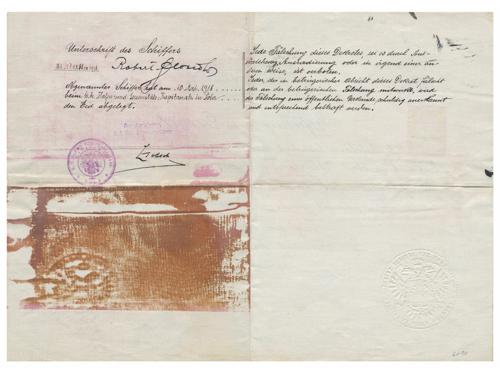 Unterschrift des Schiffers
Robert
Obgenannter Schiffer hat am 10. 1918
beim k.k. Hafen und Kapitanate in Pola
den Eid abgelegt.
Jede Fälschung dieses Dekretes sei es durch Aus-
oder in irgend einer an-
deren Weise, ist verboten.
Jeder der in betrügerischer Absicht dieses Dekret fälscht
oder an der betrügerischen Fälschung mitwirkt, wird
der Fälschung einer öffentlichen Urkunde schuldig anerkannt
und entsprechend bestraft werden.